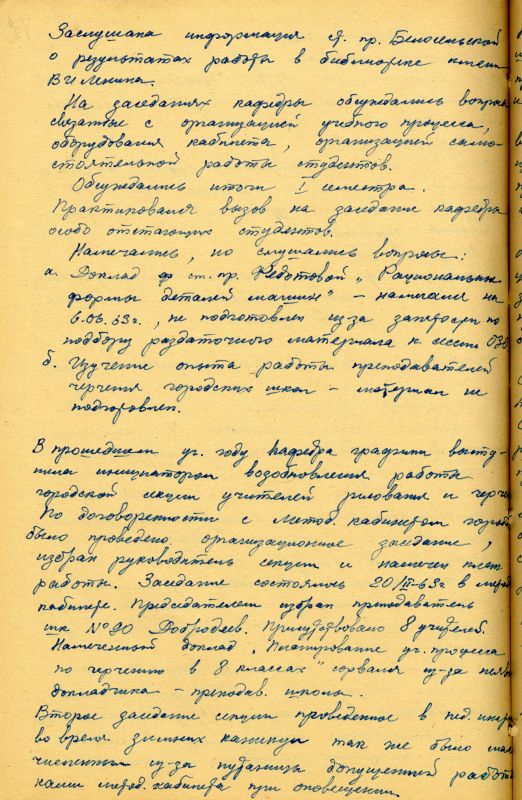 Заслушана информация я. пр. Белосельской
о результатах работы в библиотеке имени
В И Ленина.
На заседаниях кафедры обсуждались вопросы
связанные с организацией учебного процесса,
оборудования кабинета, организацией само-
стоятельной работы студентов.
Обсуждались итоги I семестра.
Практиковался вызов на заседание кафедры
особо отстающих студентов.
Намечались, но слушались вопросы:
а. Доклад ст. пр. Федотовой „Рациональные
формы деталей машин" – намечался на
6.06.63г., не подготовлен из за занятости по
подбору раздаточного материала к сессии ОЗО
б. Изучение опыта работы преподавателей
черчения городских школ – материал не
подготовлен.
В прошедшем уч. году кафедра графики высту-
пила инициатором возобновления работы
городской секции учителей рисования и черче
По договоренности с метод. кабинетом города
было проведено организационное заседание,
избран руководитель секции и намечен план
работы. Заседание состоялось 20/III-63г в метод
кабинете. Председателем избран преподаватель
шк №90 Добродеев. Присутствовало 8 учителей.
Намеченный доклад „Планирование уч. процесса
по черчению в 8 классах" сорвался из-за неявки
докладчика – преподав. школы.
Второе заседание секции проведенное в пед. инст
во время зимних каникул так же было мало
численным из-за путаницы допущенной работ
ками метод. кабинета при оповещении